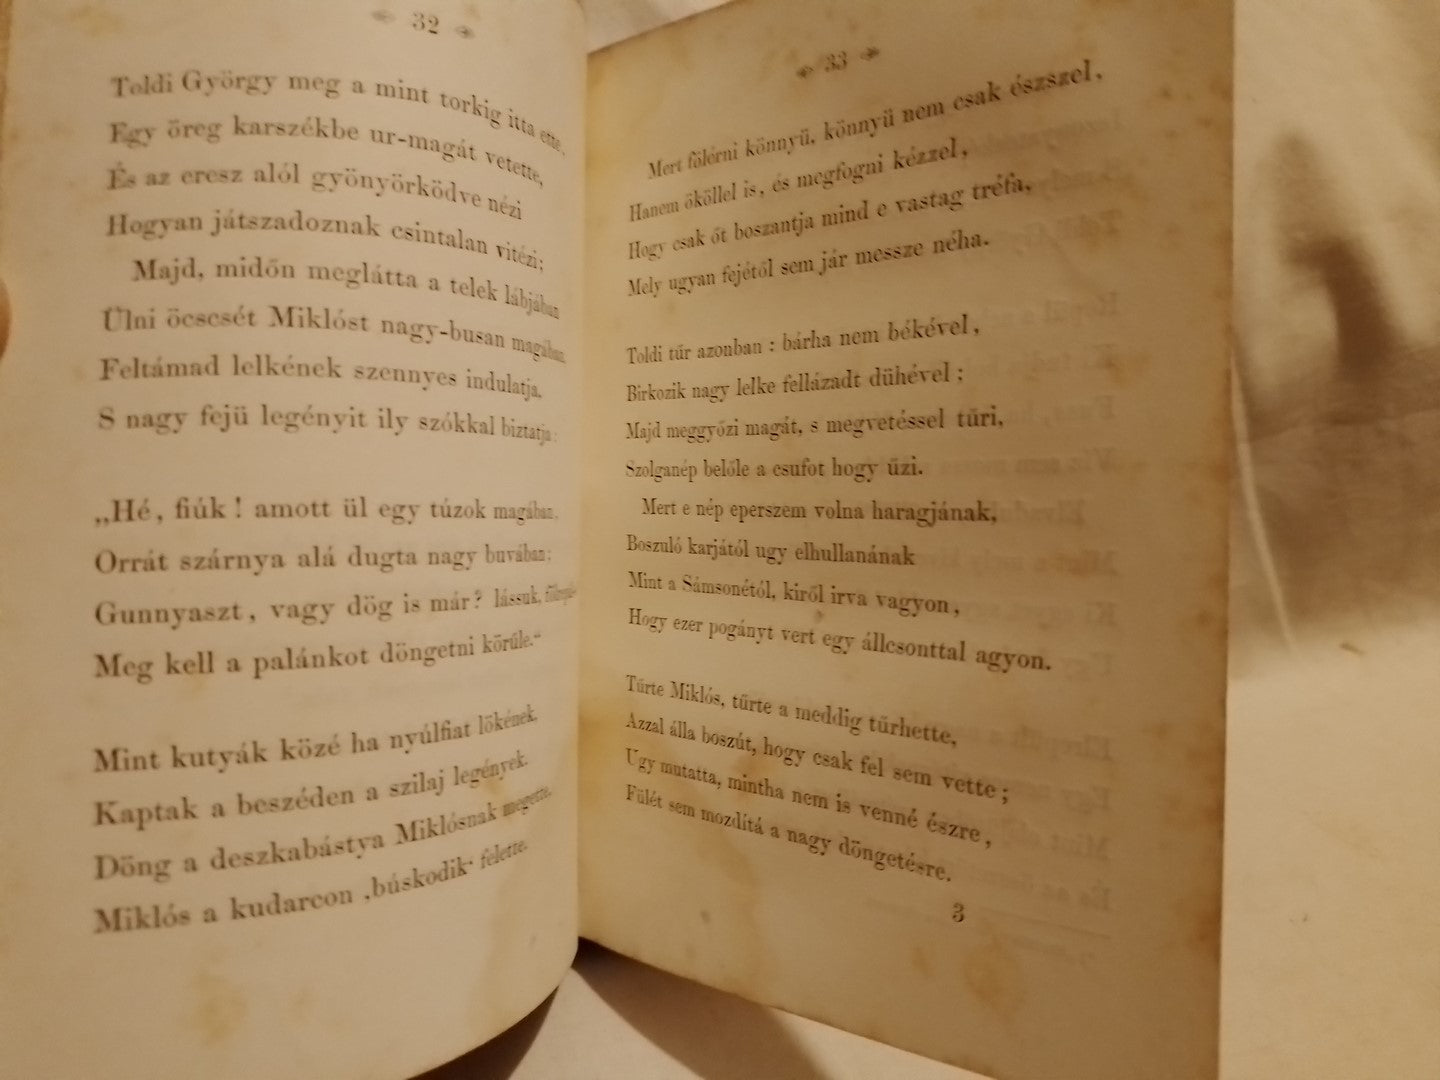 32
Toldi György meg a mint torkig itta ette,
Egy öreg karszékbe ur-magát vetette,
És az eresz alól gyönyörködve nézi
Hogyan játszadoznak csintalan vitézi;
Majd, midőn meglátta a telek lábjában
Ülni öcscsét Miklóst nagy-busan magában,
Feltámad lelkének szennyes indulatja,
S nagy fejü legényit ily szókkal biztatja:
„Hé, fiúk! amott ül egy túzok magában,
Orrát szárnya alá dugta nagy buvában;
Gunnyaszt, vagy dög is már? lássuk,
Meg kell a palánkot döngetni körüle.“
Mint kutyák közé ha nyúlfiat lökének,
Kaptak a beszéden a szilaj legények.
Döng a deszkabástya Miklósnak megette,
Miklós a kudarcon ‚búskodik‘ felette.
33
Mert fölérni könnyü, könnyü nem csak észszel,
Hanem ököllel is, és megfogni kézzel,
Hogy csak őt boszantja mind e vastag tréfa,
Mely ugyan fejétől sem jár messze néha.
Toldi tűr azonban: bárha nem békével,
Birkozik nagy lelke fellázadt dühével;
Majd meggyőzi magát, s megvetéssel tűri,
Szolganép belőle a csufot hogy űzi.
Mert e nép eperszem volna haragjának,
Boszuló karjától ugy elhullanának
Mint a Sámsonétól, kiről irva vagyon,
Hogy ezer pogányt vert egy állcsonttal agyon.
Tűrte Miklós, tűrte a meddig tűrhette,
Azzal álla boszút, hogy csak fel sem vette;
Ugy mutatta, mintha nem is venné észre,
Fülét sem mozdítá a nagy döngetésre.
3